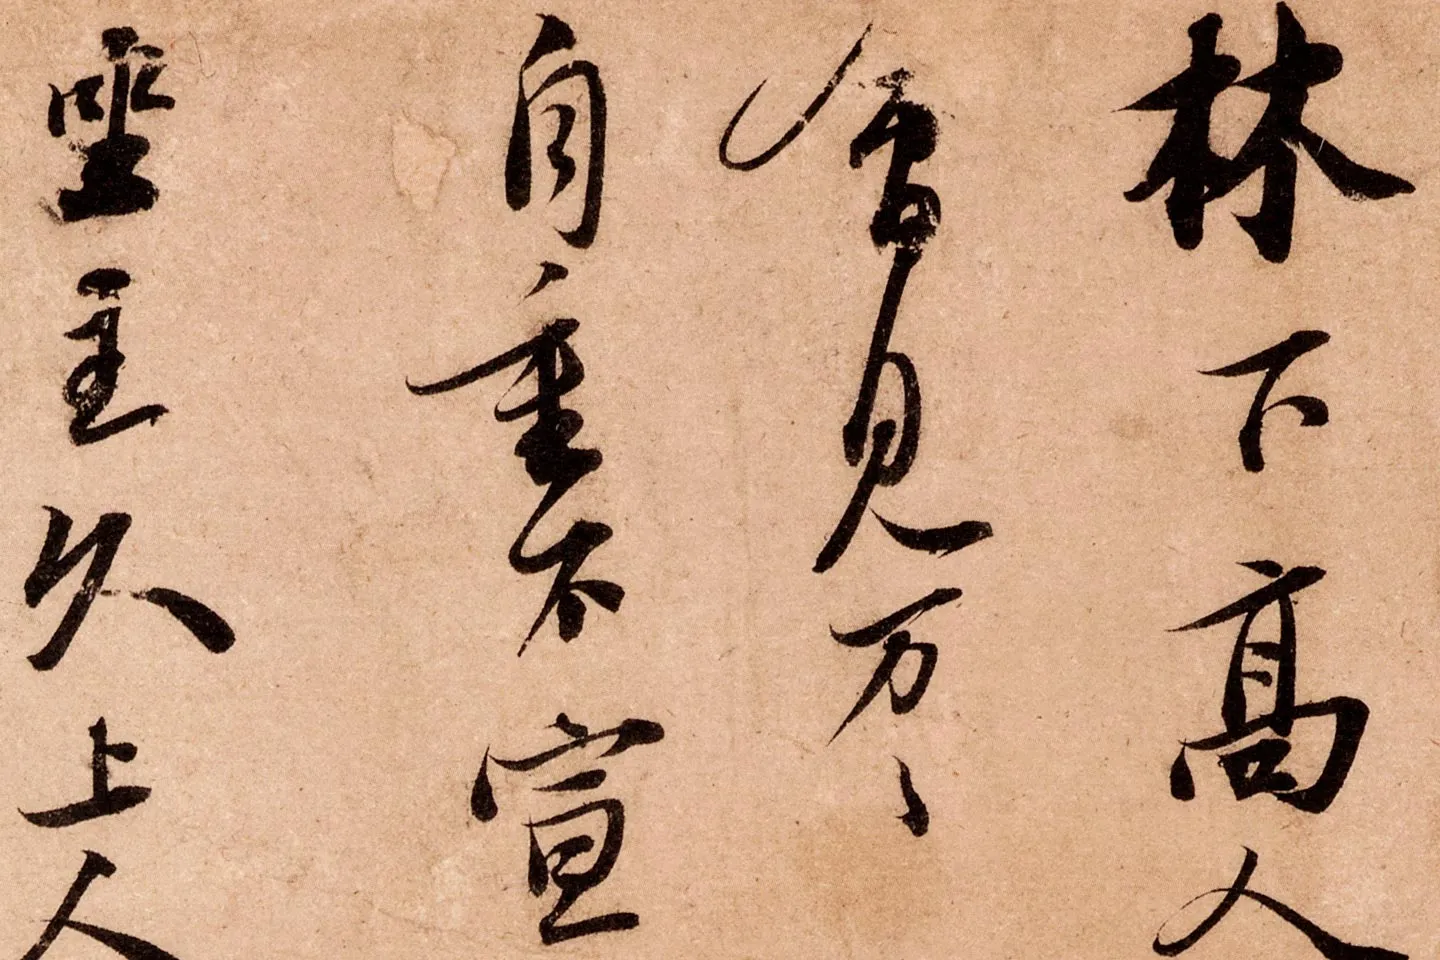 林下高人
會見万〻
自重不宣
坐主久上人